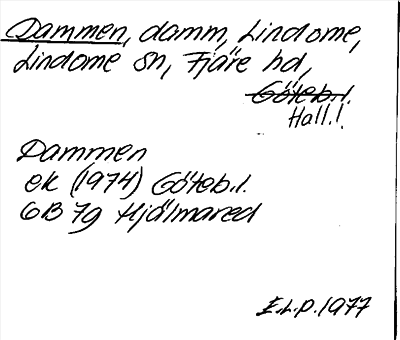 Dammen, damm, Lindome,
Lindome sn, Fjäre hd,
Göteb.l.
Hall.l.
Dammen
ek (1974) Göteb.l.
6B 7g Hjälmared
E.L.P. 1977